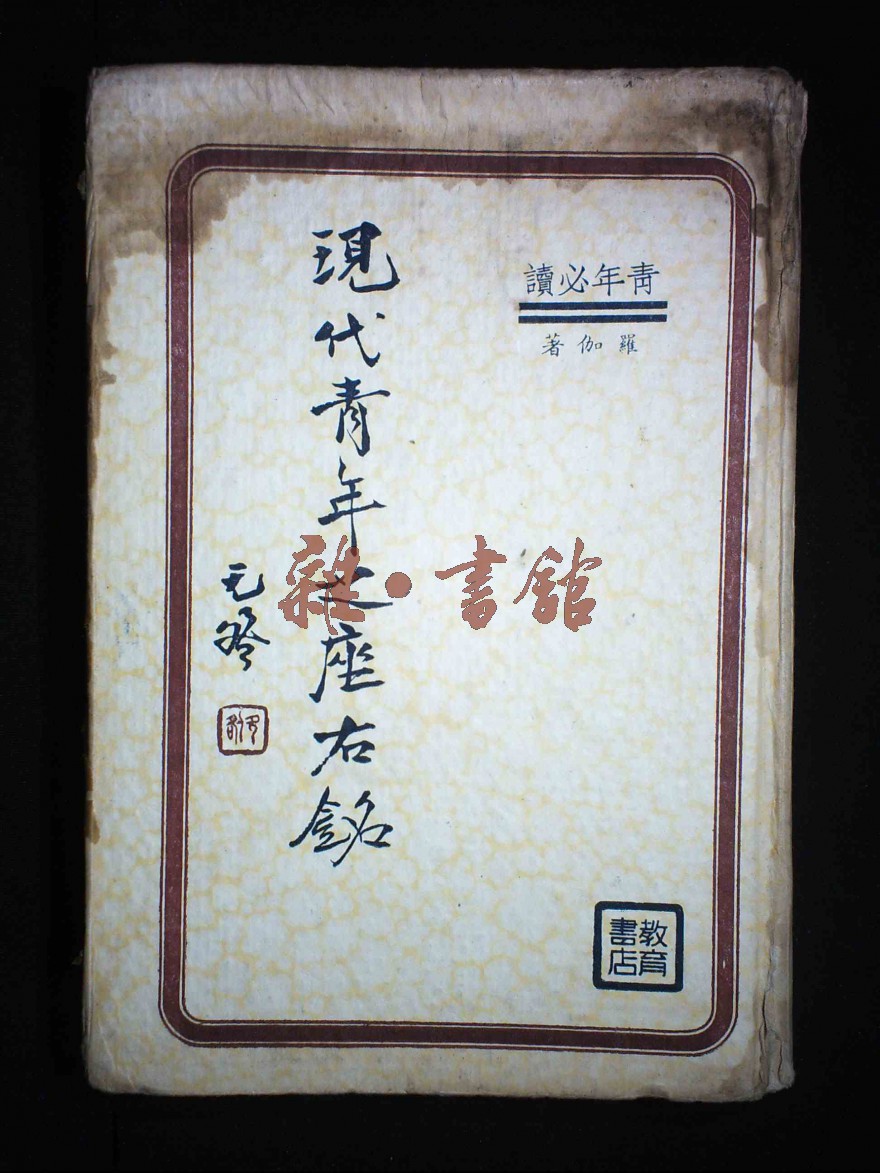 青年必讀
羅伽著
現代青年之座右銘
教育
書店
雜·書館